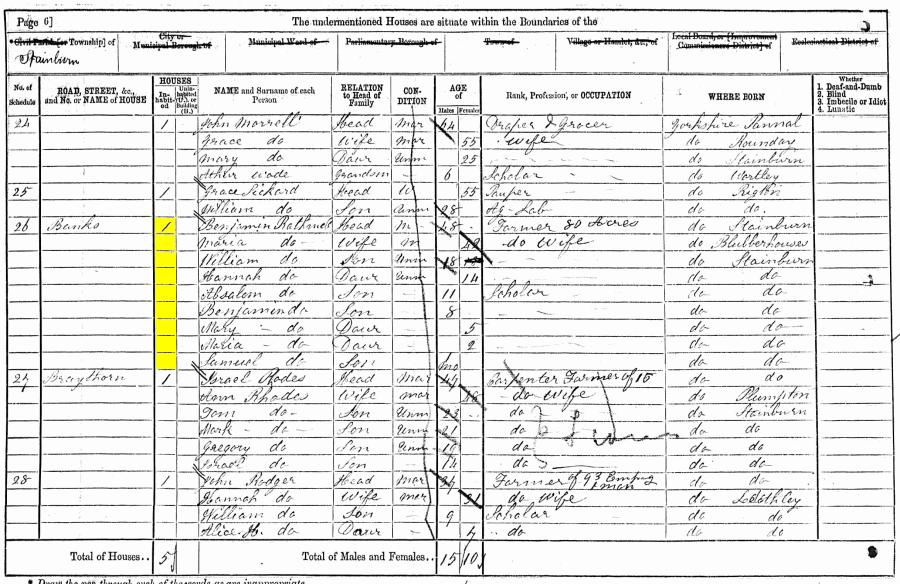 Page 6] The undermentioned Houses are situate within the Boundaries of the
Civil Parish [or Township] of City or Municipal Borough of Municipal Ward of Parliamentary Borough of Town of Village or Hamlet, &c., of Local Board, or [Improvement Commissioners District] of Ecclesiastical District of
Stainburn
No. of Schedule ROAD, STREET, &c., and No. or NAME of HOUSE HOUSES In-habit-ed Unin-habited (U.), or Building (B.) NAME and Surname of each Person RELATION to Head of Family CON-DITION AGE of Males Females Rank, Profession, or OCCUPATION WHERE BORN Whether 1. Deaf-and-Dumb 2. Blind 3. Imbecile or Idiot 4. Lunatic
24 1 John Morrell Head Mar 64 Draper & Grocer Yorkshire Pannal
Grace do Wife Mar 55 Wife do Rounday
Mary do Daur Unm 25 do Stainburn
Wade Grandson 6 Scholar do Wortley
25 1 Grace Pickard Head W 55 Pauper do
William do Son Unm 28 Ag. Lab do do
26 Banks 1 Benjamin Head M 48 Farmer 80 Acres do Stainburn
Maria do Wife M do Wife do Blubberhouses
William do Son Unm 18 do Stainburn
Hannah do Daur Unm 14 do do
Absalom do Son 11 Scholar do do
Benjamin do Son 8 do do
Mary do Daur 5 do do
Maria do Daur 2 do do
Samuel do Son mo do do
27 Braythorn 1 Israel Rodes Head Mar 49 Carpenter Farmer of 15 do do
Ann Rhodes Wife Mar do Wife do Plumpton
Tom do Son Unm 23 do do Stainburn
Mark do Son Unm 21 do do do
Gregory do Son Unm 19 do do do
Israel do Son 14 do do do
28 1 John Rodger Head Mar Farmer of 93 Emp 1 man do do
Hannah do Wife Mar do Wife do
William do Son 9 Scholar do do
Alice H. do Daur 7 do do do
Total of Houses.. 5 Total of Males and Females.. 15 10